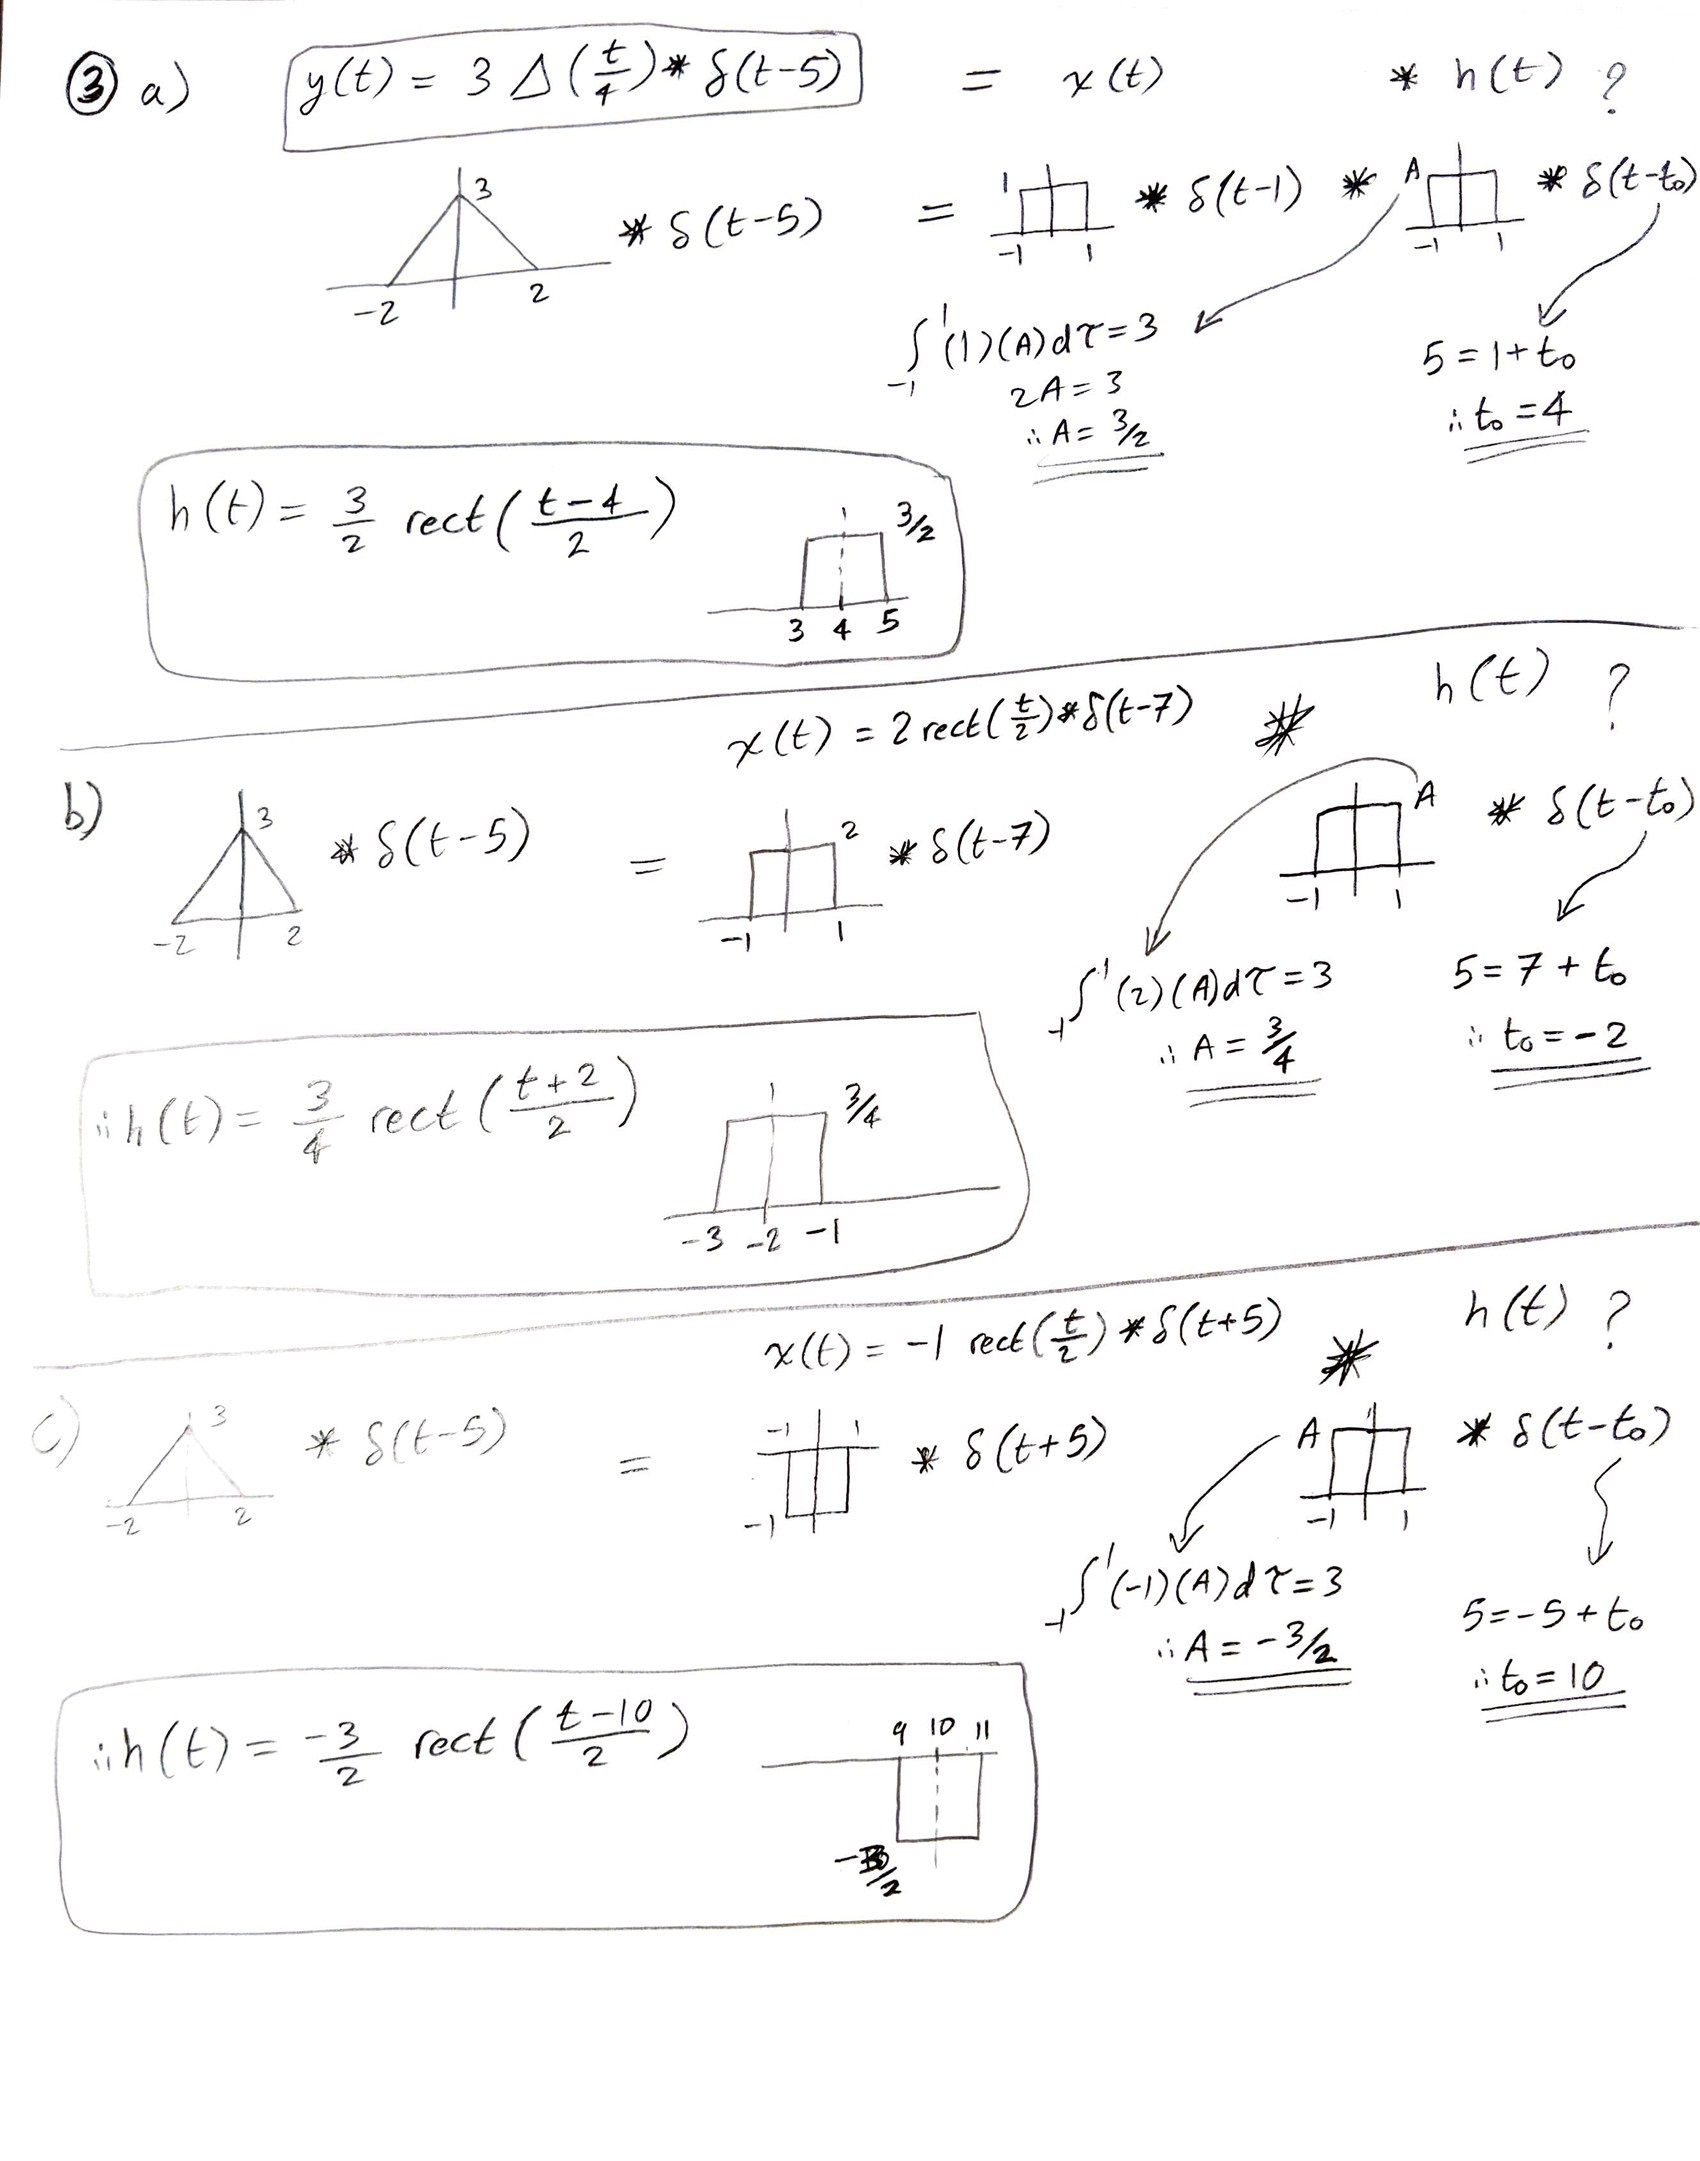 ③ a) y(t) = 3 Δ(t/4) * δ(t-5) = x(t) * h(t) ?
3
-2 2
* δ(t-5) = 1 -1 1 * δ(t-1) * A -1 1 * δ(t-t₀)
∫₋₁¹ (1)(A)dτ = 3
2A = 3
∴ A = 3/2
5 = 1 + t₀
∴ t₀ = 4
h(t) = 3/2 rect((t-4)/2)
3/2
3 4 5
x(t) = 2 rect(t/2) * δ(t-7) * h(t) ?
b) 3 -2 2 * δ(t-5) = 2 -1 1 * δ(t-7) A -1 1 * δ(t-t₀)
∫₋₁¹ (2)(A)dτ = 3
∴ A = 3/4
5 = 7 + t₀
∴ t₀ = -2
∴ h(t) = 3/4 rect((t+2)/2)
3/4
-3 -2 -1
x(t) = -1 rect(t/2) * δ(t+5) * h(t) ?
c) 3 -2 2 * δ(t-5) = -1 1 -1 * δ(t+5) A -1 1 * δ(t-t₀)
∫₋₁¹ (-1)(A)dτ = 3
∴ A = -3/2
5 = -5 + t₀
∴ t₀ = 10
∴ h(t) = -3/2 rect((t-10)/2)
9 10 11
-3/2